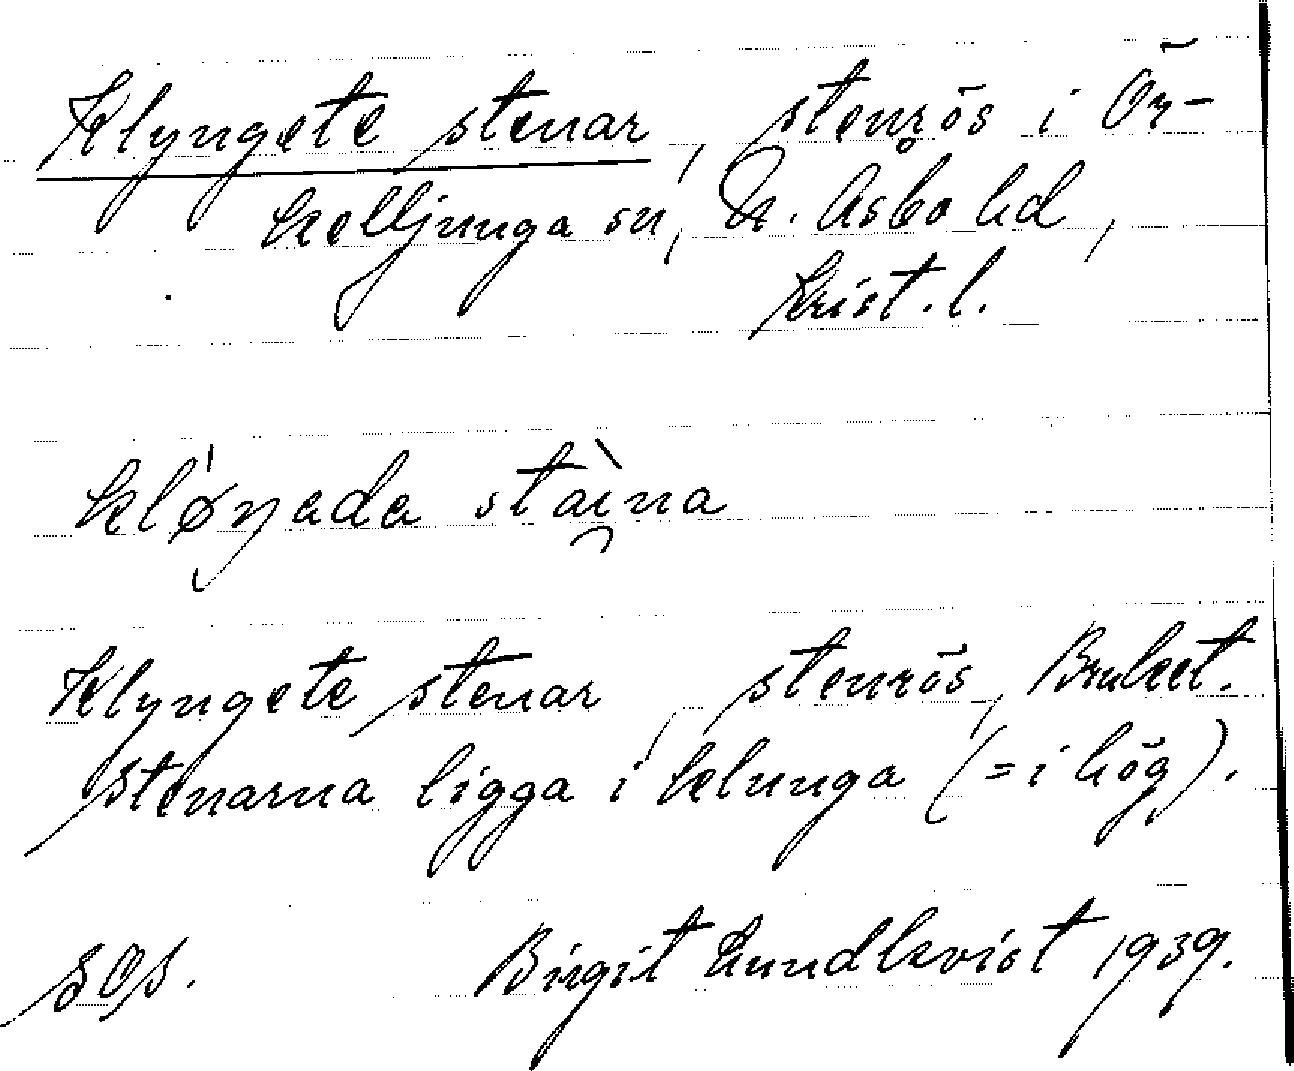 Klyngete stenar, stenrös i Ör-
kelljunga sn, N. Åsbo hd,
Krist. l.
kløŋada staina
Klyngete stenar, stenrös, Bruket.
Stenarna ligga i klunga (= i hög).
SOS. Birgit Lundkvist 1939.